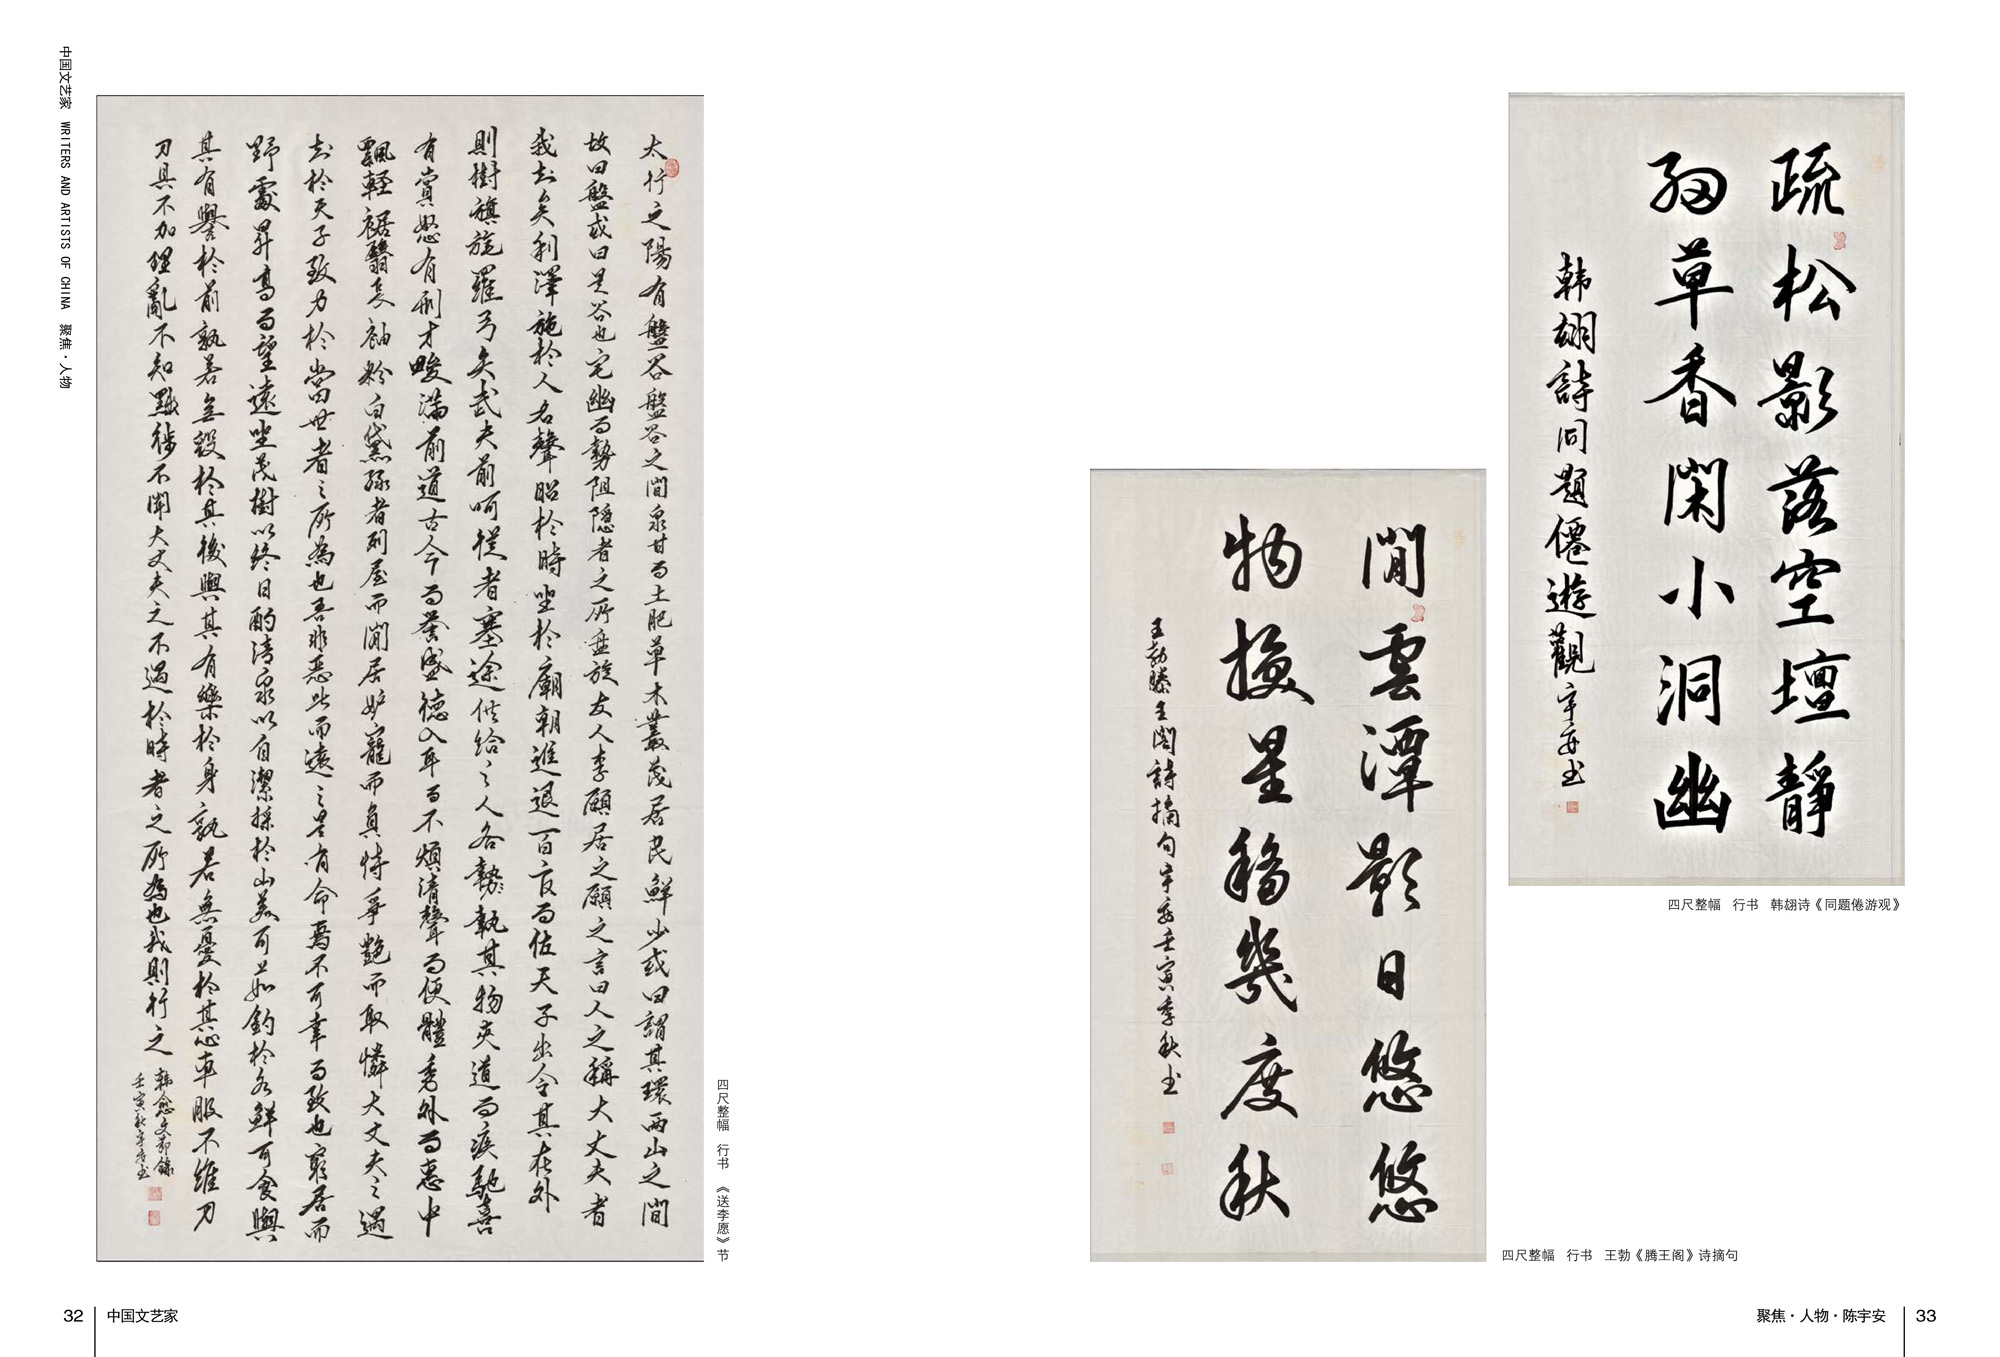 中国文艺家 WRITERS AND ARTISTS OF CHINA 聚焦·人物
太行之陽有盤谷盤谷之間泉甘而土肥草木叢茂居民鮮少或曰謂其環兩山之間
故曰盤或曰是谷也宅幽而勢阻隱者之所盤旋友人李願居之願之言曰人之稱大丈夫者
我知矣利澤施於人名聲昭於時坐於廟朝進退百官而佐天子出令其在外
則樹旗旄羅弓矢武夫前呵從者塞途供給之人各勢執其物夾道而疾馳喜
有賞怒有刑才畯滿前道古今而譽盛德入耳而不煩清聲而便體秀外而惠中
飄輕裾翳長袖粉白黛綠者列屋而閒居妒寵而負恃爭艷而取憐大丈夫之遇
知於天子致力於當世者之所為也吾非惡此而逃之是有命焉不可幸而致也窮居而
野處昇高而望遠坐茂樹以終日酌清泉以自潔採於山美可茹釣於水鮮可食與
其有譽於前孰若無毀於其後與其有樂於身孰若無憂於其心車服不維刀
刀具不加理亂不知黜陟不聞大丈夫之不遇於時者之所為也我則行之
韓愈文節錄
壬寅秋宇安书
四尺整幅 行书 《送李愿》节
閒雲潭影日悠悠
物換星移幾度秋
王勃滕王閣詩摘句宇安壬寅季秋书
四尺整幅 行书 王勃《腾王阁》诗摘句
疏松影落空壇靜
細草香閑小洞幽
韩翃詩同題僊遊觀宇安书
四尺整幅 行书 韩翃诗《同题倦游观》
32 中国文艺家
聚焦·人物·陈宇安 33